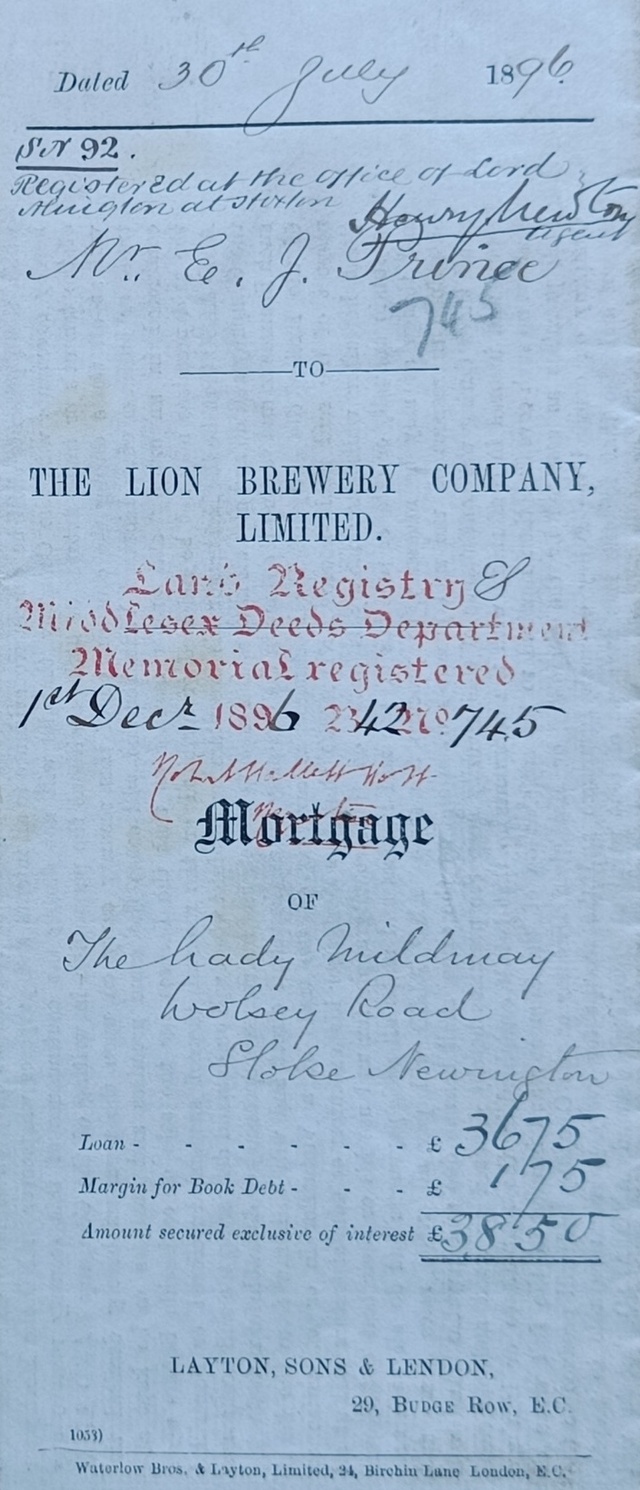 Dated 30th July 1896.
SN 92.
Registered at the office of Lord
at Henry Newton
Agent
Mr. E. J. Prince
745
TO
THE LION BREWERY COMPANY,
LIMITED.
Land Registry &
Middlesex Deeds Department
Memorial registered
1st Decr 1896 B 42 No 745
Mortgage
OF
The Lady Mildmay
Wolsey Road
Stoke Newington
Loan - - - - - - £ 3675
Margin for Book Debt - - - £ 175
Amount secured exclusive of interest £3850
LAYTON, SONS & LENDON,
29, BUDGE ROW, E.C.
1053)
Waterlow Bros. & Layton, Limited, 24, Birchin Lane London, E.C.